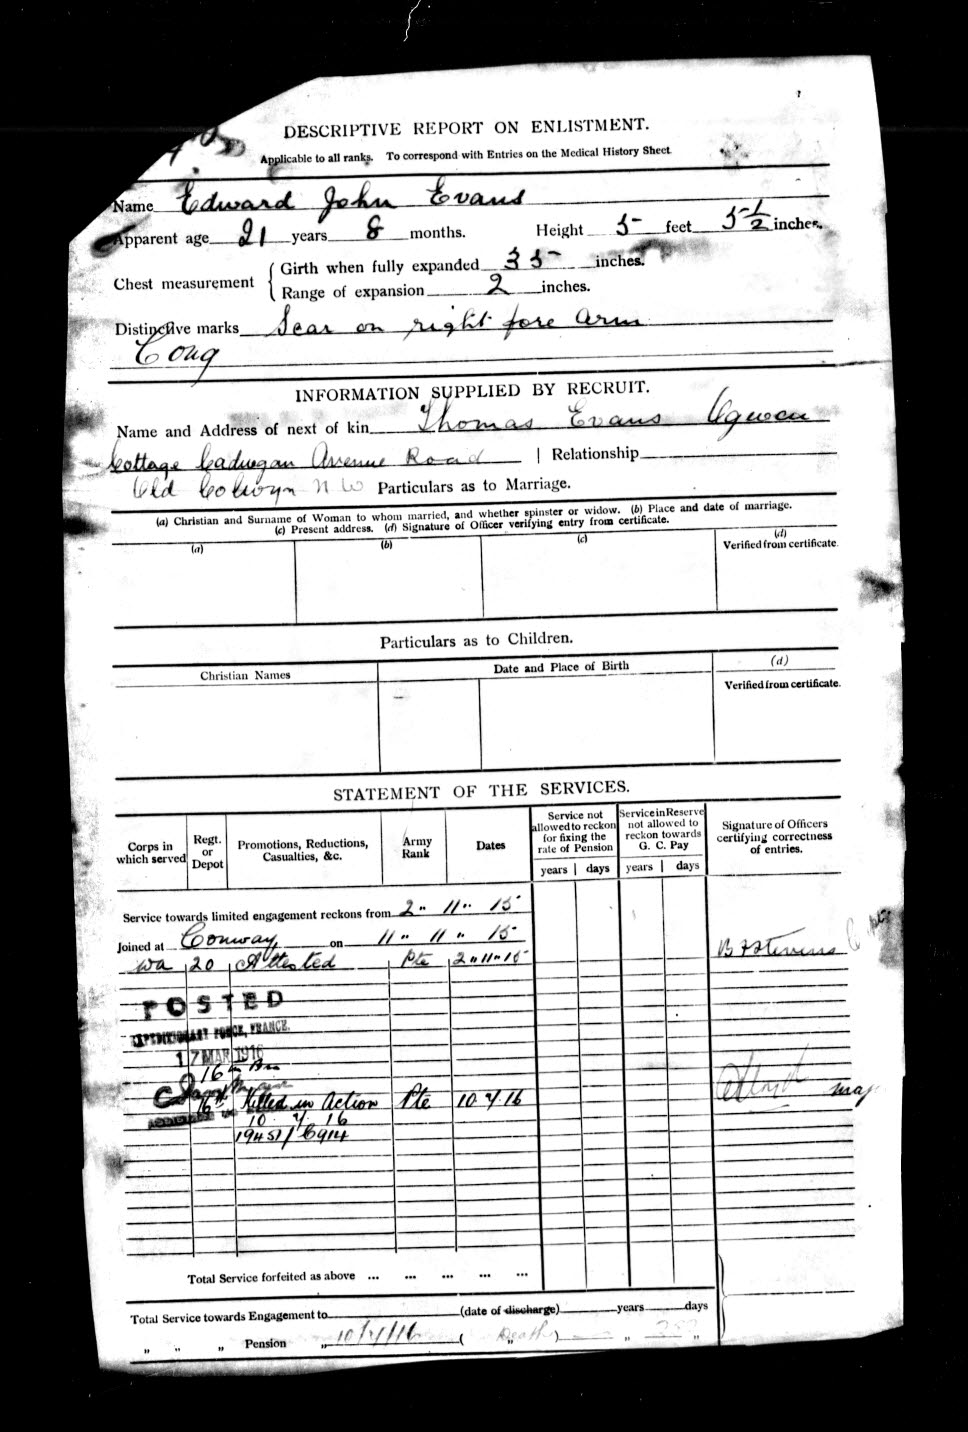 DESCRIPTIVE REPORT ON ENLISTMENT.
Applicable to all ranks. To correspond with Entries on the Medical History Sheet
Name Edward John Evans
Apparent age 21 years 8 months. Height 5 feet 5 ½ inches.
Chest measurement { Girth when fully expanded 35 inches.
Range of expansion 2 inches.
Distinctive marks Scar on right fore arm
Cong
INFORMATION SUPPLIED BY RECRUIT.
Name and Address of next of kin Thomas Evans Ogwen
Cottage Cadwgan Avenue Road | Relationship
Old Colwyn N W Particulars as to Marriage.
(a) Christian and Surname of Woman to whom married, and whether spinster or widow. (b) Place and date of marriage.
(c) Present address. (d) Signature of Officer verifying entry from certificate.
(a) (b) (c) (d)
Verified from certificate.
Particulars as to Children.
Christian Names Date and Place of Birth (d)
Verified from certificate.
STATEMENT OF THE SERVICES.
Corps in which served
Regt. or Depot
Promotions, Reductions, Casualties, &c.
Army Rank
Dates
Service not allowed to reckon for fixing the rate of Pension
years | days
Service in Reserve not allowed to reckon towards G. C. Pay
years | days
Signature of Officers certifying correctness of entries.
Service towards limited engagement reckons from 2" 11" 15
Joined at Conway on 11" 11" 15
WA 20 Attested Pte 2"11"15 B F Stevens
POSTED
EXPEDITIONARY FORCE, FRANCE.
17 MAR 1916
16th Bn
16th Killed in Action Pte 10 7 16 Maj
10 7 16
19451/C914
Total Service forfeited as above ... ... ... ... ...
Total Service towards Engagement to (date of discharge) years days
" " " Pension " 10/7/16 ( Death ) " "